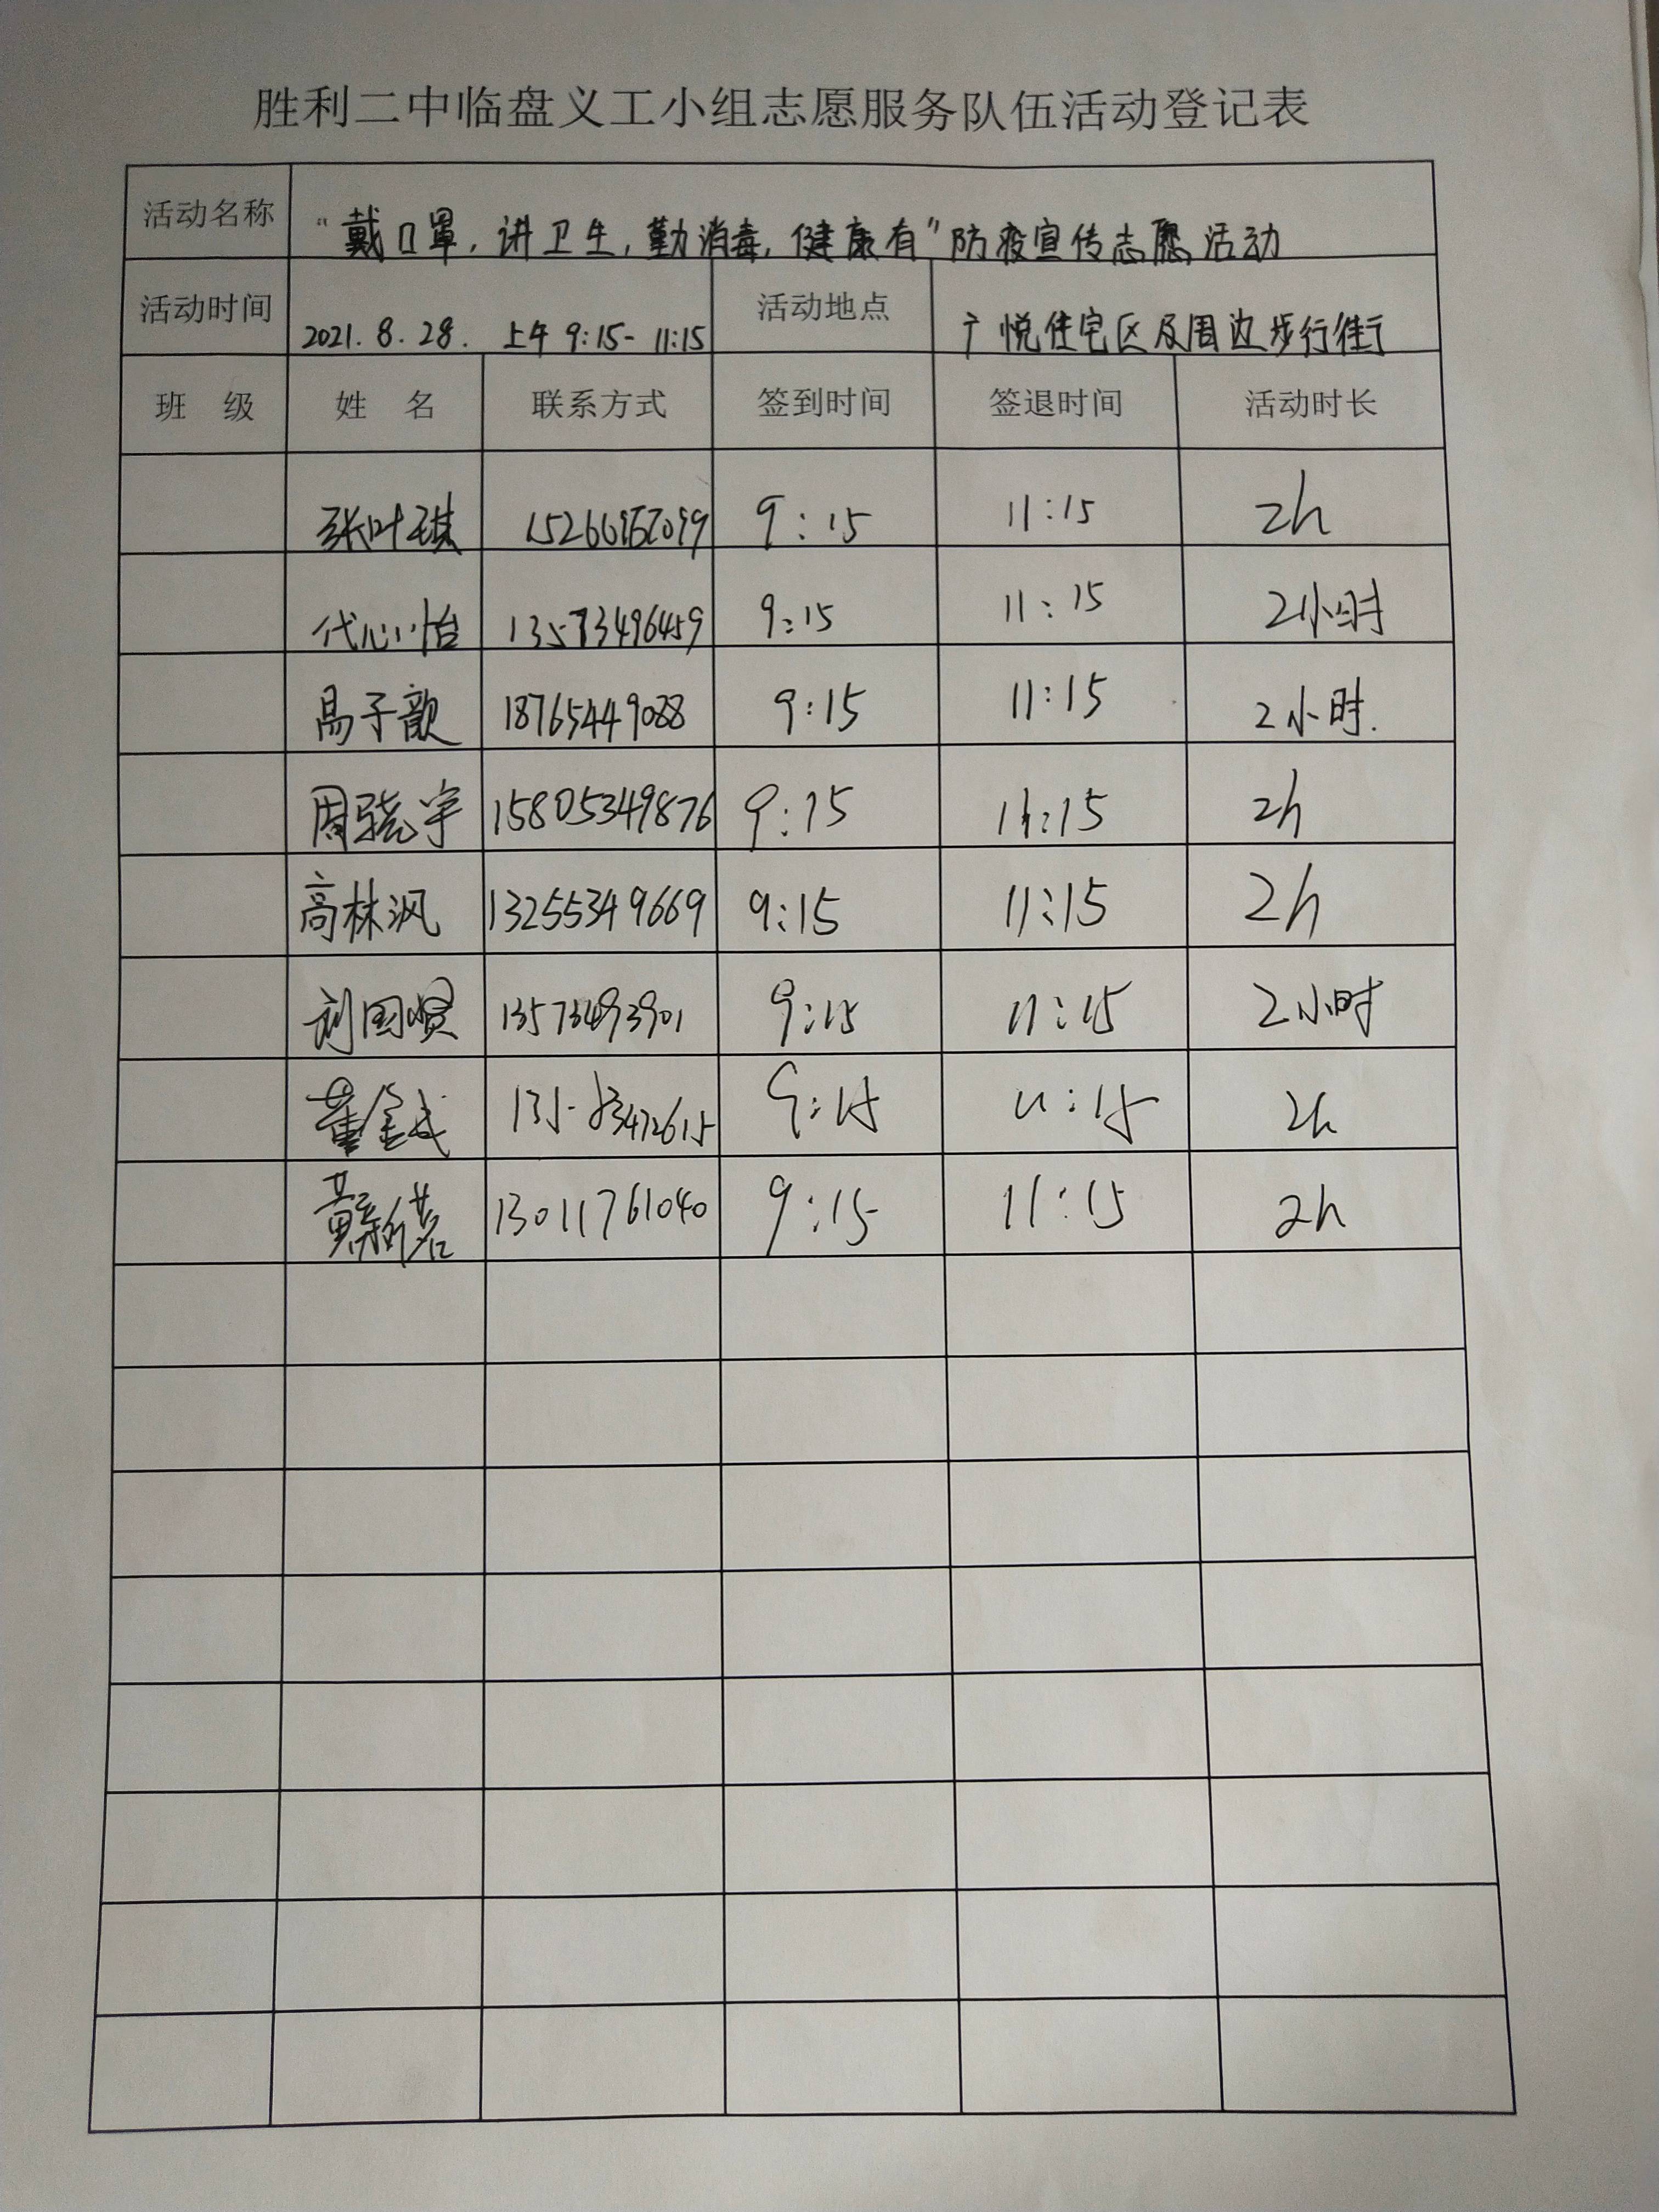 胜利二中临盘义工小组志愿服务队伍活动登记表
活动名称 “戴口罩，讲卫生，勤消毒，健康有”防疫宣传志愿活动
活动时间 2021.8.28. 上午 9:15-11:15 活动地点 广悦住宅区及周边步行街
班 级 姓 名 联系方式 签到时间 签退时间 活动时长
张叶琪 9:15 11:15 2h
代心怡 13573496459 9:15 11:15 2小时
子歆 18765449088 9:15 11:15 2小时.
周骁宇 15805349876 9:15 11:15 2h
高林沨 13255349669 9:15 11:15 2h
刘国贤 13573493901 9:15 11:15 2小时
董金 9:15 11:15 2h
黄新茗 13011761040 9:15 11:15 2h